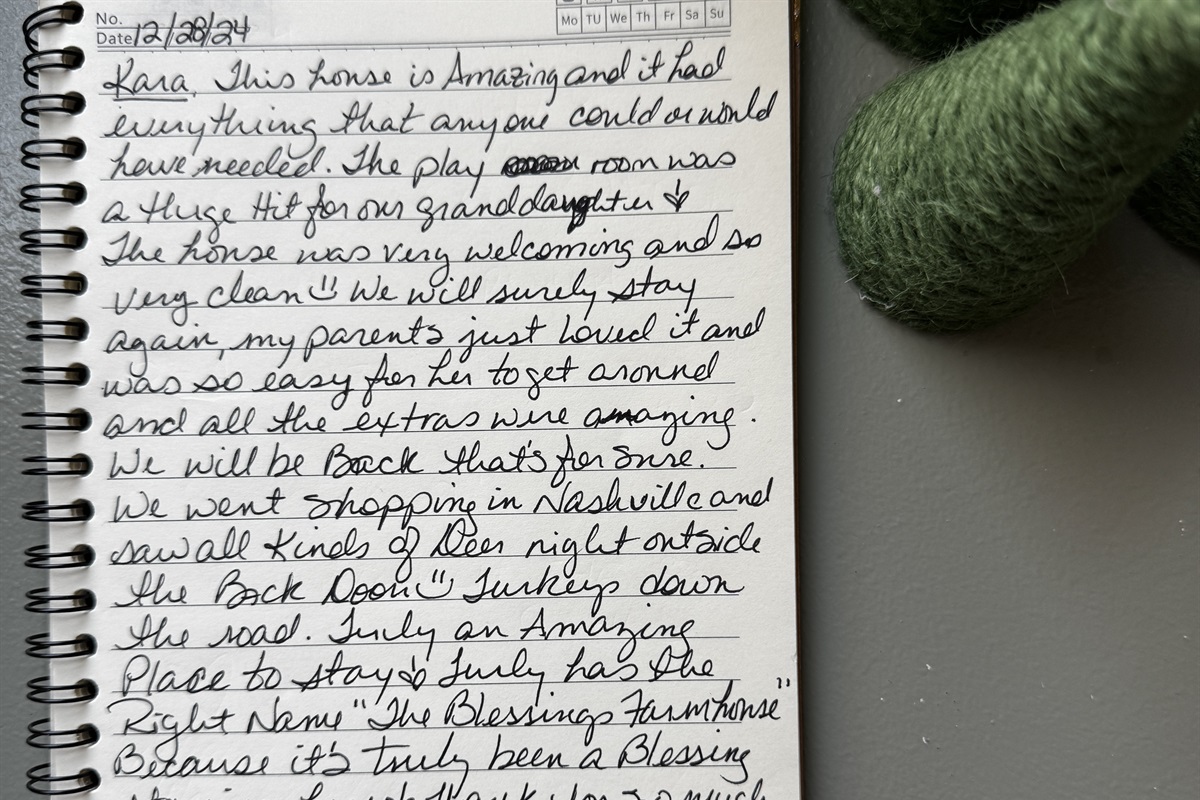 No.
Mo TU We Th Fr Sa Su
Date 12/28/24
Kara, This house is Amazing and it had
everything that anyone could or would
have needed. The play room was
a Huge Hit for our granddaughter
The house was very welcoming and so
very clean We will surely stay
again, my parents just Loved it and
was so easy for her to get around
and all the extras were amazing.
We will be Back that's for sure.
We went shopping in Nashville and
saw all Kinds of Deer right outside
the Back Door Turkeys down
the road. Truly an Amazing
Place to stay Truly has the
Right Name "The Blessings Farmhouse"
Because it's truly been a Blessing
thank you so much